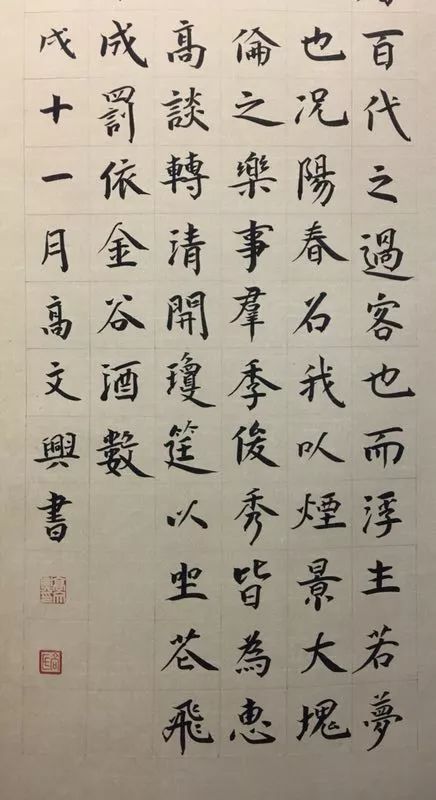 百代之過客也而浮生若夢
也況陽春召我以煙景大塊
倫之樂事羣季俊秀皆為惠
高談轉清開瓊筵以坐花飛
成罰依金谷酒數
戌十一月高文興書